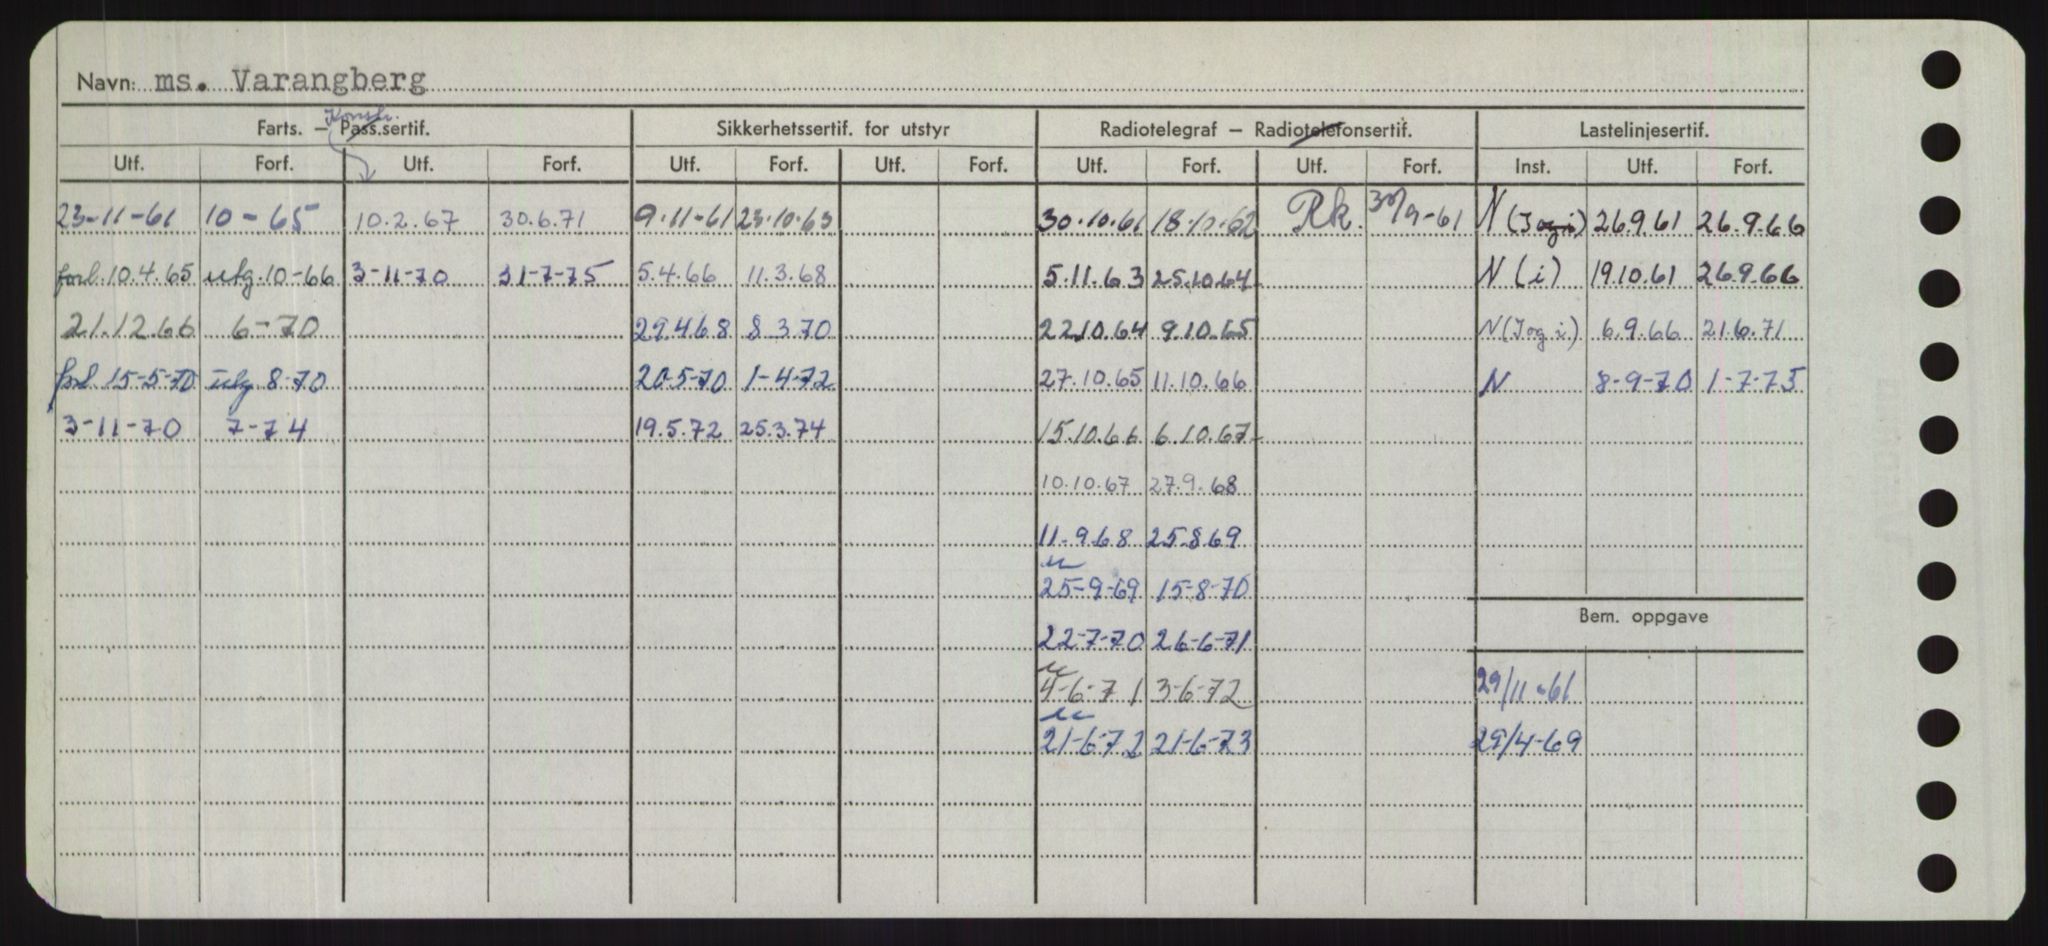 Navn: ms. Varangberg
Konstr.
Farts. – Pass.sertif. Sikkerhetssertif. for utstyr Radiotelegraf – Radiotelefonsertif. Lastelinjesertif.
Utf. Forf. Utf. Forf. Utf. Forf. Utf. Forf. Utf. Forf. Utf. Forf. Inst. Utf. Forf.
23-11-61 10-65 10.2.67 30.6.71 9.11-61 23.10.63 30.10.61 18.10.62 Rk. 30/9-61 N (I og i) 26.9.61 26.9.66
forl. 10.4.65 utg. 10-66 3-11-70 31-7-75 5.4.66 11.3.68 5.11.63 25.10.64 N (i) 19.10.61 26.9.66
21.12.66 6-70 29.4.68 8.3.70 22.10.64 9.10.65 N (I og i.) 6.9.66 21.6.71
forl. 15-5-70 utg 8-70 20-5-70 1-4-72 27.10.65 11.10.66 N 8-9-70 1-7-75
3-11-70 7-74 19.5.72 25.3.74 15.10.66 6.10.67
10.10.67 27.9.68
11.9.68 25.8.69
u
25-9-69 15-8-70
Bem. oppgave
22-7-70 26-6-71
u
4-6-71 3-6-72 29/11-61
u
21-6-72 21-6-73 29/4-69